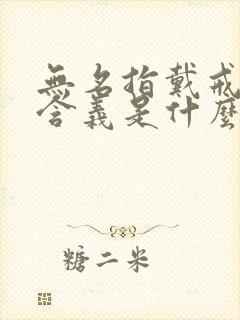 無名指戴戒
含義是什麼
糖二米